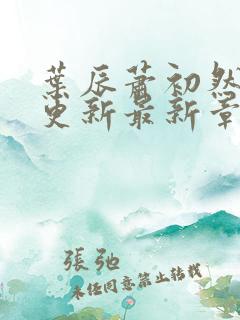 葉辰蕭初然
更新最新章
張弛
未經同意禁止轉載